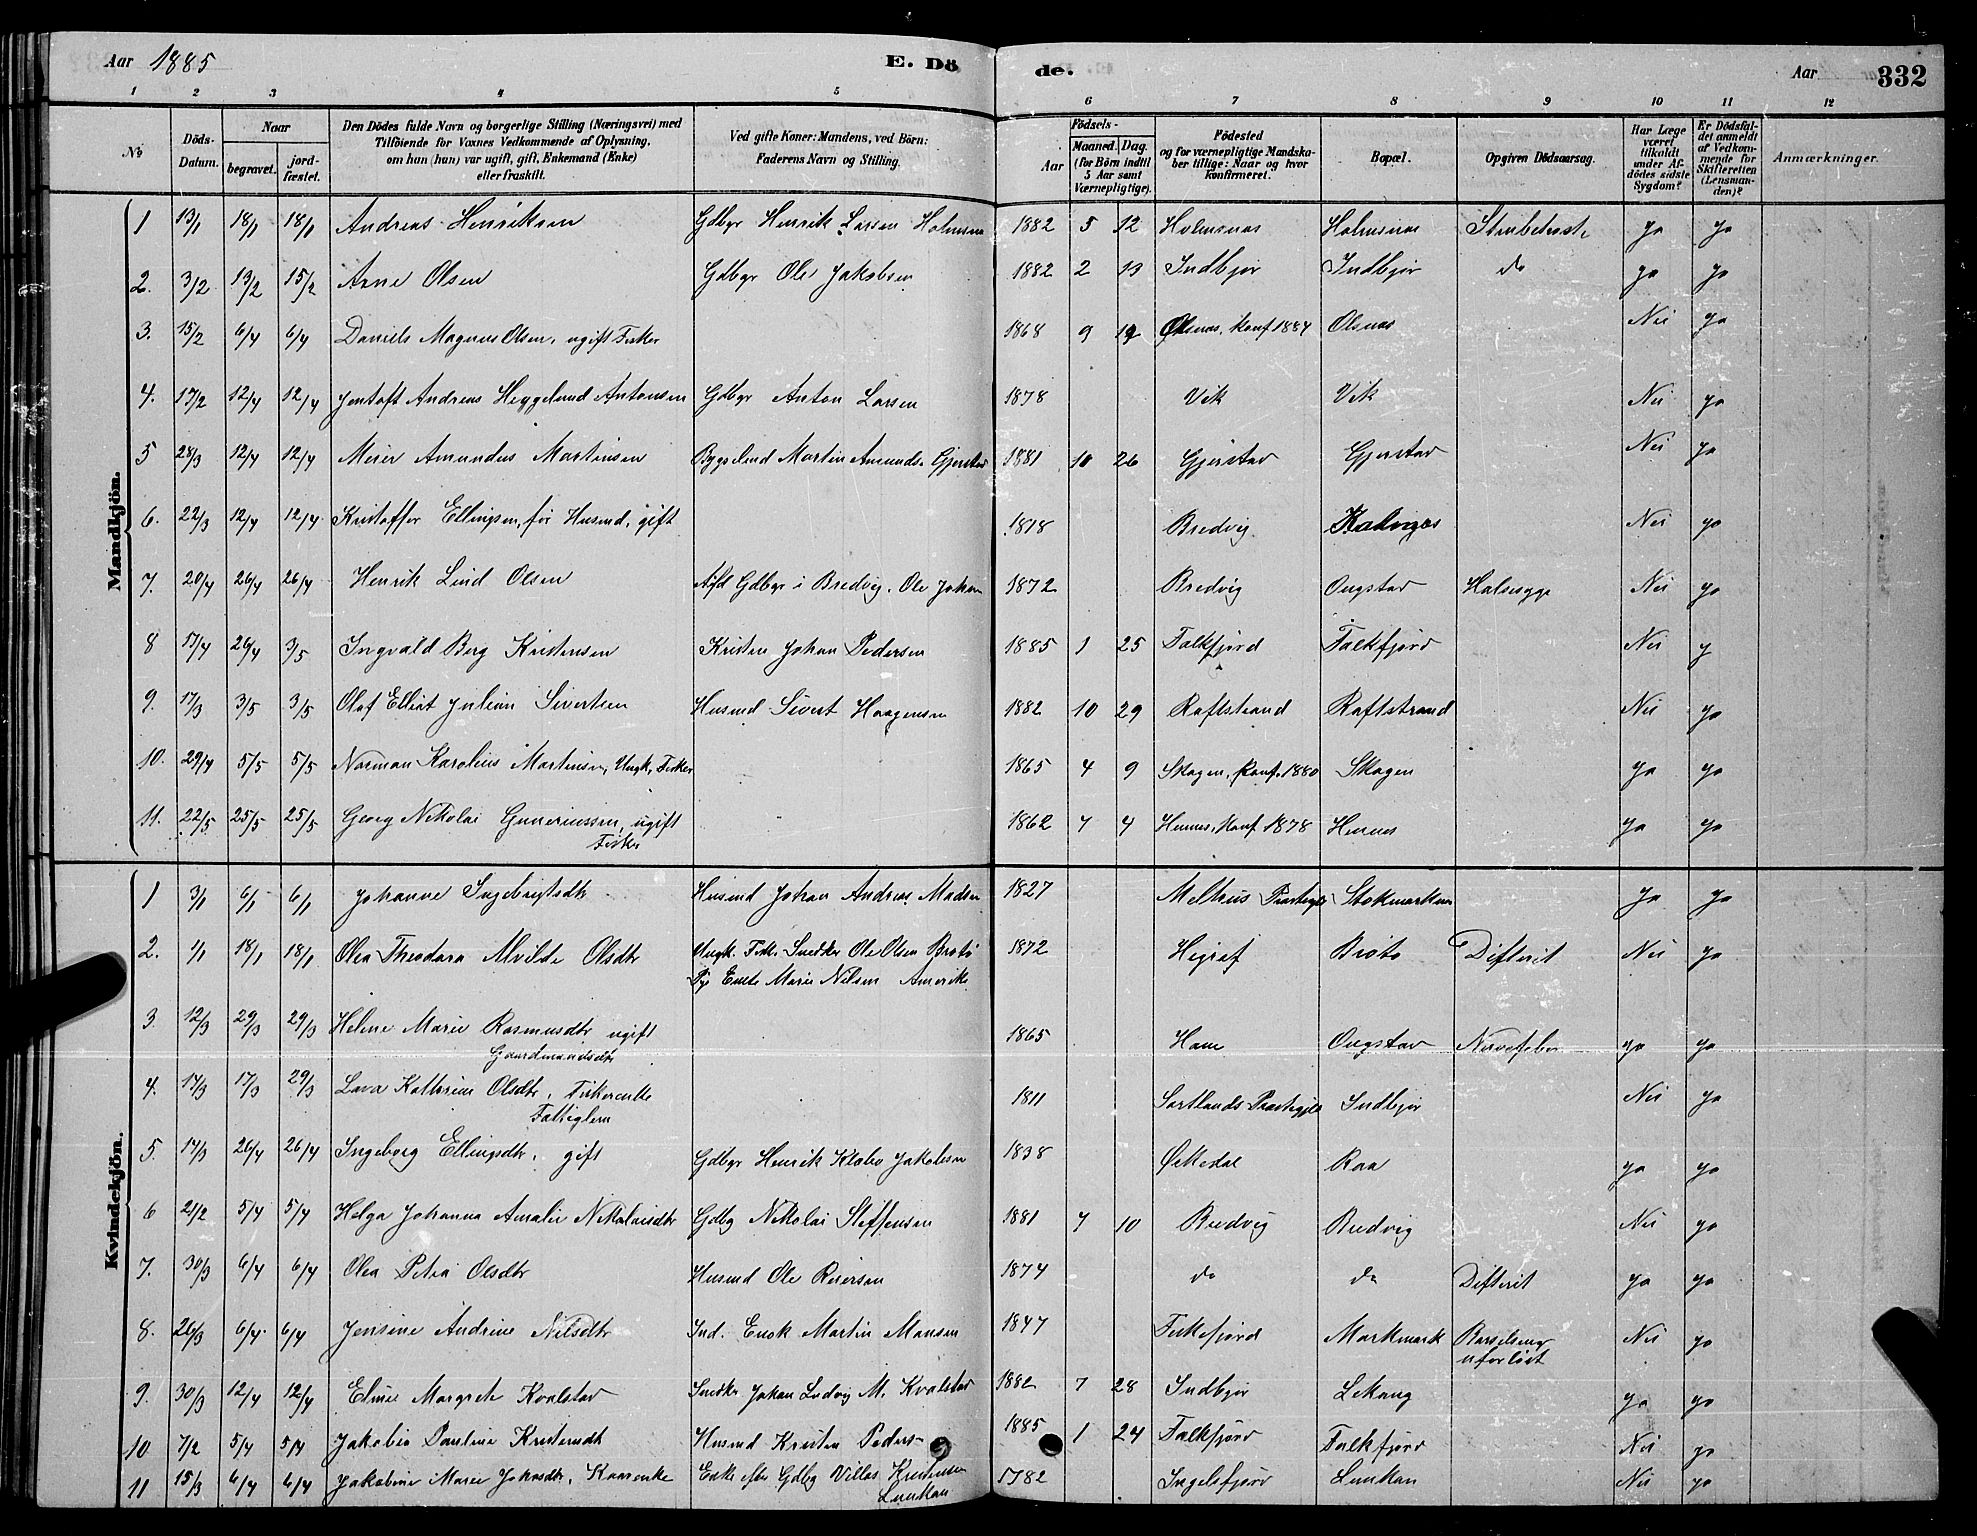 Aar 1885
E. Dö
de.
Aar
332
1 2 3 4 5 6 7 8 9 10 11 12
No
Döds-Datum.
Naar
begravet.
jordfæstet.
Den Dödes fulde Navn og borgerlige Stilling (Næringsvei) med
Tilföiende for Voxnes Vedkommende af Oplysning,
om han (hun) var ugift, gift, Enkemand (Enke)
eller fraskilt.
Ved gifte Koner: Mandens, ved Börn:
Faderens Navn og Stilling.
Födsels-
Aar
Maaned. Dag.
(for Börn indtil
5 Aar samt
Værnepligtige).
Födested
og for værnepligtige Mandskaber tillige: Naar og hvor
konfirmeret.
Bopæl.
Opgiven Dödsaarsag.
Har Læge
været
tilkaldt
under Afdödes sidste
Sygdom?
Er Dödsfaldet anmeldt
af Vedkommende for
Skifteretten
(Lensmanden)?
Anmærkninger.
Mandkjön.
1 13/1 18/1 18/1 Andreas Henriksen Gdbgr Henrik Larsen 1882 5 12 Holmsnas Holmsnas ja ja
2. 3/2 13/2 15/2 Arne Olsen Gdbgr Ole Jakobsen 1882 2 13 Indbjor Indbjor do ja ja
3. 15/2 6/4 6/4 Daniels Magnus Olsen, ugift Fisker 1868 9 Olsnas, Konf. 1884 Olsnas Nei ja
4. 17/2 12/4 12/4 Jentoft Andreas Heggelund Antonsen Gdbgr Anton Larsen 1878 Vik Vik Nei ja
5 28/3 12/4 12/4 Meier Amandus Martinsen Martin 1881 10 26 Gjerstad Gjerstad Nei ja
6. 22/3 12/4 12/4 Kristoffer Ellingsen, Husmd, gift 1818 Bredvig Nei ja
7. 20/4 26/4 26/4 Henrik Lind Olsen Gdbgr i Bredvig, Ole Johan 1872 Bredvig Ongstad Halssyge Nei ja
8 17/4 26/4 3/5 Ingvald Berg Kristensen Kristen Johan Pedersen 1885 1 25 Falkfjord Falkfjord Nei j
9. 17/3 3/5 3/5 Olaf Elliot Julius Sivertsen Husmd Sivert Haagensen 1882 10 29 Raftstrand Raftstrand Nei ja
10. 29/4 5/5 5/5 Norman Karolius Martinsen, Ungk, Fisker 1865 4 9 Skagen, Konf. 1880 Skagen ja ja
11. 22/5 25/5 25/5 Georg Nikolai Gunneriussen, ugift
Fisker 1862 4 Hennes, Konf 1878 Hennes ja ja
Kvindekjön.
1 3/1 6/1 6/1 Johanne Ingebrigtsdtr Husmd Johan Andreas Madsen 1827 Melhus Præstegjeld Stokmarknes ja ja
2. 1/1 18/1 18/1 Olea Theodora Alvilde Olsdtr Ungk. Snedker Ole Olsen Brotø
Pige Marie Nilsen Amerika 1872 Higraf Difterit Nei ja
3. 12/3 29/3 29/3 Helene Marie Rasmusdtr ugift
Gaardmandsdtr 1865 Ongstad Nervefeber ja ja
4. 14/3 17/3 29/3 Kathrine Olsdtr, Fiskerenke
Fattiglem 1811 Sortlands Præstegjeld Indbjor Nei ja
5. 14/3 26/4 26/4 Ingeborg Ellingsdtr, gift Gdbgr Henrik Klæbo Jakobsen 1838 Raa ja ja
6 21/2 5/4 5/4 Helga Johanna Amalie Nikolaisdtr Gdbg Nikolai Steffensen 1881 10 Bredvig Bredvig Nei ja
7. 30/3 6/4 6/4 Olea Petra Olsdtr Husmd Ole Reiersen 1874 do do Difterit ja ja
8. 26/3 6/4 6/4 Jensine Andrine Nilsdtr Ind. Enok Martin 1847 Markmark Barselseng
uforløst Nei ja
9. 30/3 12/4 12/4 Margrete Kvalstad Snedkr Johan Ludvig M. Kvalstad 1882 7 28 Indbjor Lekang ja ja
10 7/2 5/4 5/4 Jakobia Pauline Kristensdtr Husmd Kristen Peders- 1885 1 24 Falkfjord Falkfjord Nei ja
11 15/3 6/4 6/4 Jakobine Marie Kaarenke Enke efter Gdbg Villas Kristensen
Lunkan Ingelsfjord Lunkan Nei ja